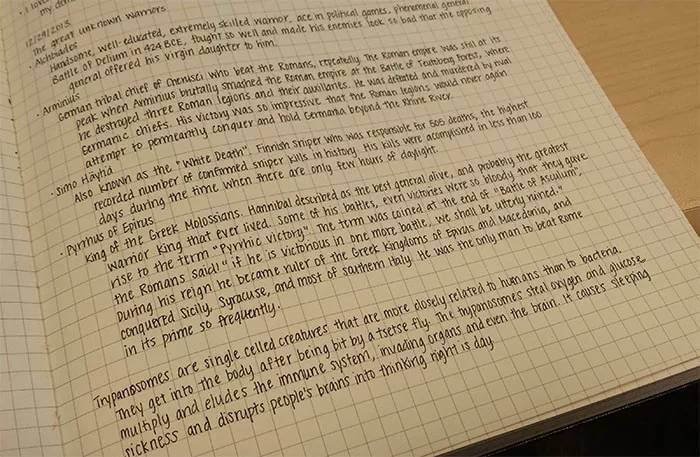 • I
my
12/29/2013.
The great unknown warriors.
• Alchibiades
Handsome, well-educated, extremely skilled warrior, ace in political games, phenomenal general
Battle of Delium in 424 BCE, fought so well and made his enemies look so bad that the opposing
general offered his virgin daughter to him.
• Arminius
German tribal chief of Cherusci who beat the Romans, repeatedly. The Roman empire was still at its
peak when Arminius brutally smashed the Roman empire at the Battle of Teutoburg Forest, where
he destroyed three Roman legions and their auxiliaries. He was defeated and murdered by rival
Germanic chiefs. His victory was so impressive that the Roman legions would never again
attempt to permeantly conquer and hold Germania beyond the Rhine River.
• Simo Häyhä
Also known as the "White Death". Finnish sniper who was responsible for 505 deaths, the highest
recorded number of confirmed sniper kills in history. His kills were acomplished in less than 100
days during the time when there are only few hours of daylight.
• Pyrrhus of Epirus
King of the Greek Molossians. Hannibal described as the best general alive, and probably the greatest
warrior king that ever lived. Some of his battles, even victories were so bloody that they gave
rise to the term "Pyrrhic victory". The term was coined at the end of "Battle of Asculum",
the Romans said: "if he is victorious in one more battle, we shall be utterly ruined."
During his reign he became ruler of the Greek Kingdoms of Epirus and Macedonia, and
conquered Sicily, Syracuse, and most of southern Italy. He was the only man to beat Rome
in its prime so frequently.
Trypanosomes are single celled creatures that are more closely related to humans than to bacteria.
They get into the body after being bit by a tsetse fly. The trypanosomes steal oxygen and glucose
multiply and eludes the immune system, invading organs and even the brain. It causes sleeping
sickness and disrupts people's brains into thinking night is day.